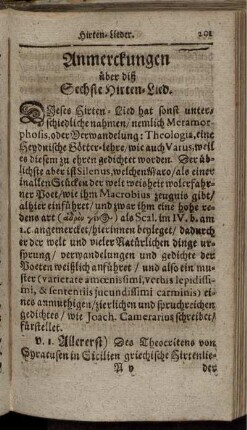 Hirten-Lieder. 201
Anmerckungen
über diß
Sechste Hirten-Lied.
Dieses Hirten-Lied hat sonst unter-
schiedliche nahmen / nemlich Metamor-
phosis, oder Verwandelung: Theologia, eine
Heydnische Götter-lehre / wie auch Varus, weil
es diesem zu ehren gedichtet worden. Der üb-
lichste aber ist Silenus, welchen Maro / als einer
in allen Stücken der welt weisheit wolerfahr-
ner Poet / wie ihm Macrobius zeugnis gibt /
alhier einführet / und zwar ihm eine hohe re-
dens art ( ) als Scal. im IV. b. am
1. c. angemercket / hierinnen beyleget / dadurch
er der welt und vieler Natürlichen dinge ur-
sprung / verwandelungen und gedichte der
Poeten weißlich anführet / und also ein mu-
ster (varietate amœnissimi, verbis lepidissi-
mi, & sententiis jucundissimi carminis) ei-
nes anmuthigen / zierlichen und spruchreichen
gedichtes / wie Joach. Camerarius schreibet /
fürstellet.
v. 1. Allererst) Des Theocritens von
Syracusen in Sicilien griechische Hirtenlie-
N v der